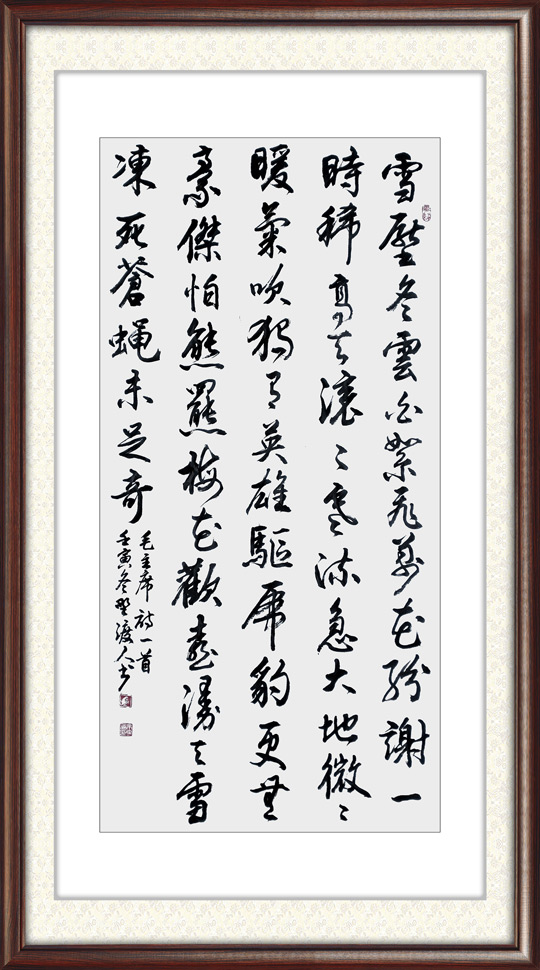 雪壓冬雲白絮飛萬花紛謝一
時稀高天滾〻寒流急大地微〻
暖氣吹獨有英雄驅虎豹更無
豪傑怕熊羆梅花歡喜漫天雪
凍死蒼蠅未足奇
毛主席詩一首
壬寅冬野渡人書